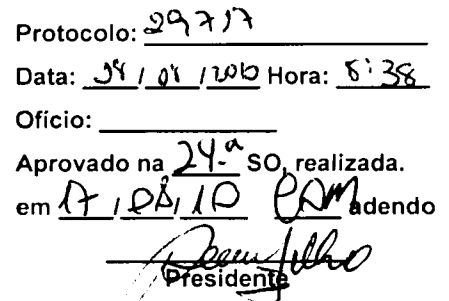 Protocolo: 29717
Data: / / Hora: 8:38
Ofício:
Aprovado na 24.ª SO, realizada.
em 17 / 08 / 10 com adendo
Presidente